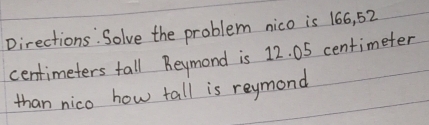 Directions: Solve the problem nico is 166,52
centimeters tall Reymond is 12.05 centimeter
than nico how tall is reymond